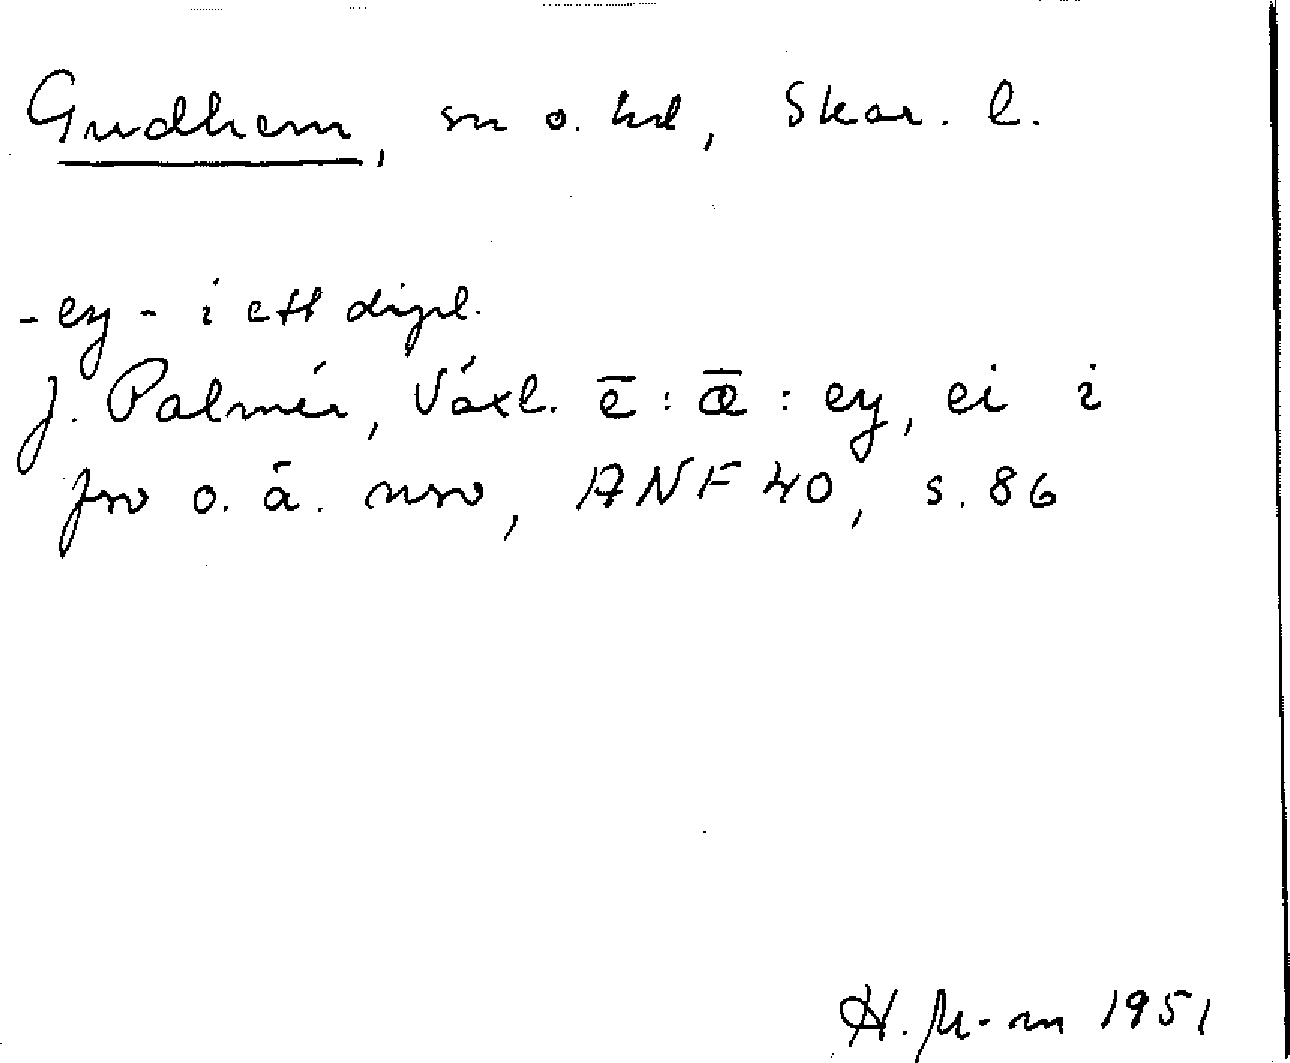 Gudhem, sn o. hd, Skar. l.
-ey- i ett dipl.
J. Palmér, Växl. ē : ǣ : ey, ei i
fsv o. ä. nsv, ANF 40, s. 86
H. M-m 1951